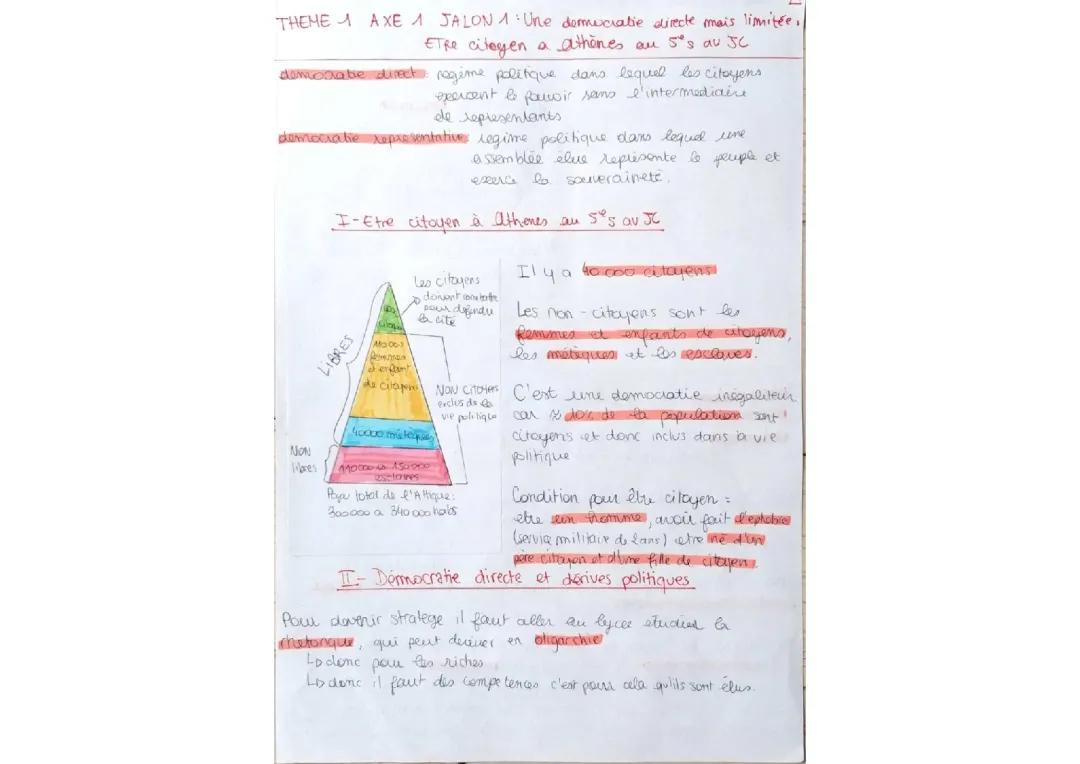 THEME 1 AXE 1 JALON 1 : Une democratie directe mais limitée,
ETRe citoyen a athènes au 5e s av JC
democratie direct : regime politique dans lequel les citoyens
exercent le pouvoir sans l'intermediaire
de representants
democratie representative regime politique dans lequel une
assemblée élue représente le peuple et
exerce la souveraineté.
I - Etre citoyen à Athenes au 5e s av JC
Les citoyens
doivent combattre
pour defendre
la cité
LIBRES
femmes
et enfant
de citoyens
NON CITOYENS
exclus de la
vie politique
40000 métèques
NON
libres
110000 à 150000
esclaves
Popu total de l'Attique :
300000 a 340000 habs
Il y a 40 000 citoyens
Les non - citoyens sont les
femmes et enfants de citoyens,
les métèques et les esclaves.
C'est une democratie inégalitair
car ≈ 10% de la population sont
citoyens et donc inclus dans la vie
politique
Condition pour être citoyen :
etre un homme, avoir fait l'ephebie
(service militaire de 2ans) etre né d'un
père citoyen et d'une fille de citoyen.
II - Démocratie directe et dérives politiques
Pour devenir stratege il faut aller au lycee etudier la
rhetorique, qui peut deriver en oligarchie
↳ donc pour les riches
↳ donc il faut des competences c'est pour cela qu'ils sont élus.